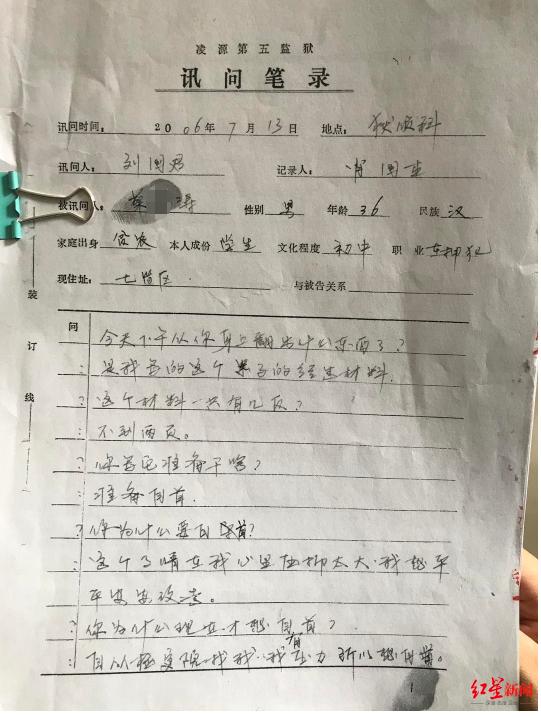 凌源第五监狱
讯问笔录
讯问时间： 2006年7月13日 地点： 狱侦科
讯问人： 刘国君 记录人： 国
被讯问人： 性别 男 年龄 36 民族 汉
家庭出身 贫农 本人成份 学生 文化程度 初中 职业 在押犯
现住址： 七监区 与被告关系
装
订
线
问 今天下午从你身上翻出什么东西了？
： 是我写的这个案子的经过材料
？ 这个材料一共有几页？
： 不到两页。
？ 你写它准备干啥？
： 准备自首
？ 你为什么要自首？
： 这个事情在我心里压抑太大，我想平
平安安改造。
？ 你为什么现在才想自首？
： 自从 院一找我，我有压力所以想自首。
1
红星新闻